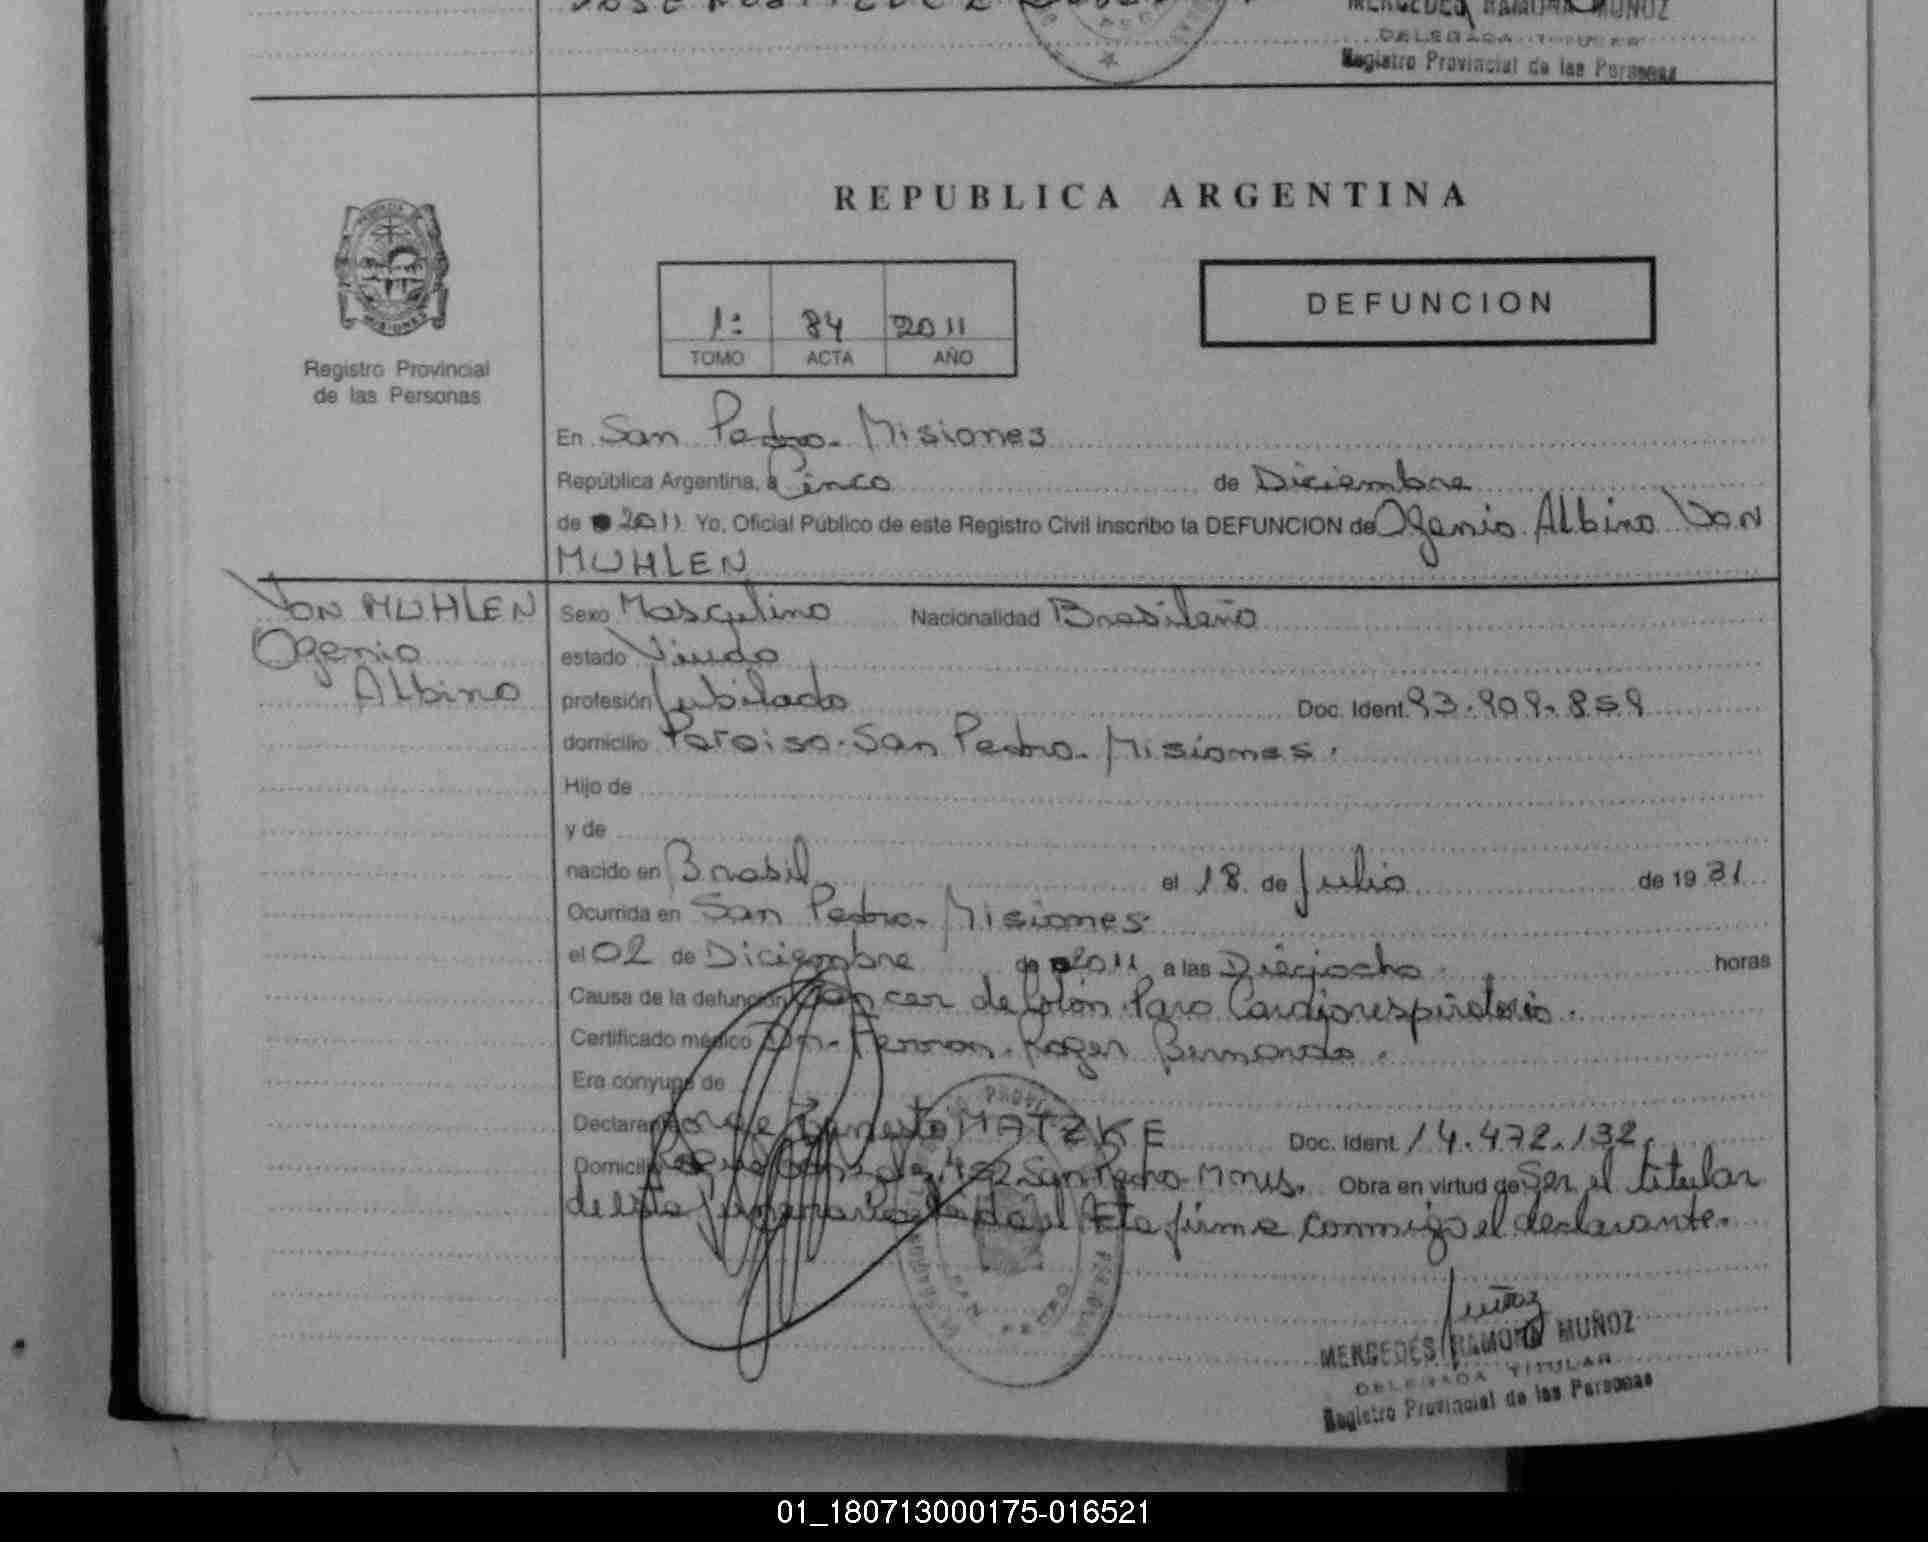 MERCEDES RAMONA MUÑOZ
DELEGADA TITULAR
Registro Provincial de las Personas
REPUBLICA ARGENTINA
MISIONES
Registro Provincial
de las Personas
1º 84 2011
TOMO ACTA AÑO
DEFUNCION
En San Pedro - Misiones
República Argentina, a Cinco de Diciembre
de 2011 Yo, Oficial Público de este Registro Civil inscribo la DEFUNCION de Ogenio Albino Von
MUHLEN
Von MUHLEN
Ogenio
Albino
Sexo Masculino Nacionalidad Brasileño
estado Viudo
profesión Jubilado Doc. Ident. 93.909.859
domicilio Paraiso. San Pedro - Misiones.
Hijo de
y de
nacido en Brasil el 18 de Julio de 19 31
Ocurrida en San Pedro - Misiones
el 02 de Diciembre de 2011 a las Dieciocho horas
Causa de la defunción Cancer de Colón. Paro Cardiorespiratorio.
Certificado médico Dr. Roger Bernardo.
Era conyuge de
Declarante Jorge Ernesto MATZKE Doc. Ident. 14.472.132
Domicilio San Pedro - Mnes. Obra en virtud de Ser el titular
de esta funeraria el Acta firma conmigo el declarante.
Muñoz
MERCEDES RAMONA MUÑOZ
DELEGADA TITULAR
Registro Provincial de las Personas
01_180713000175-016521